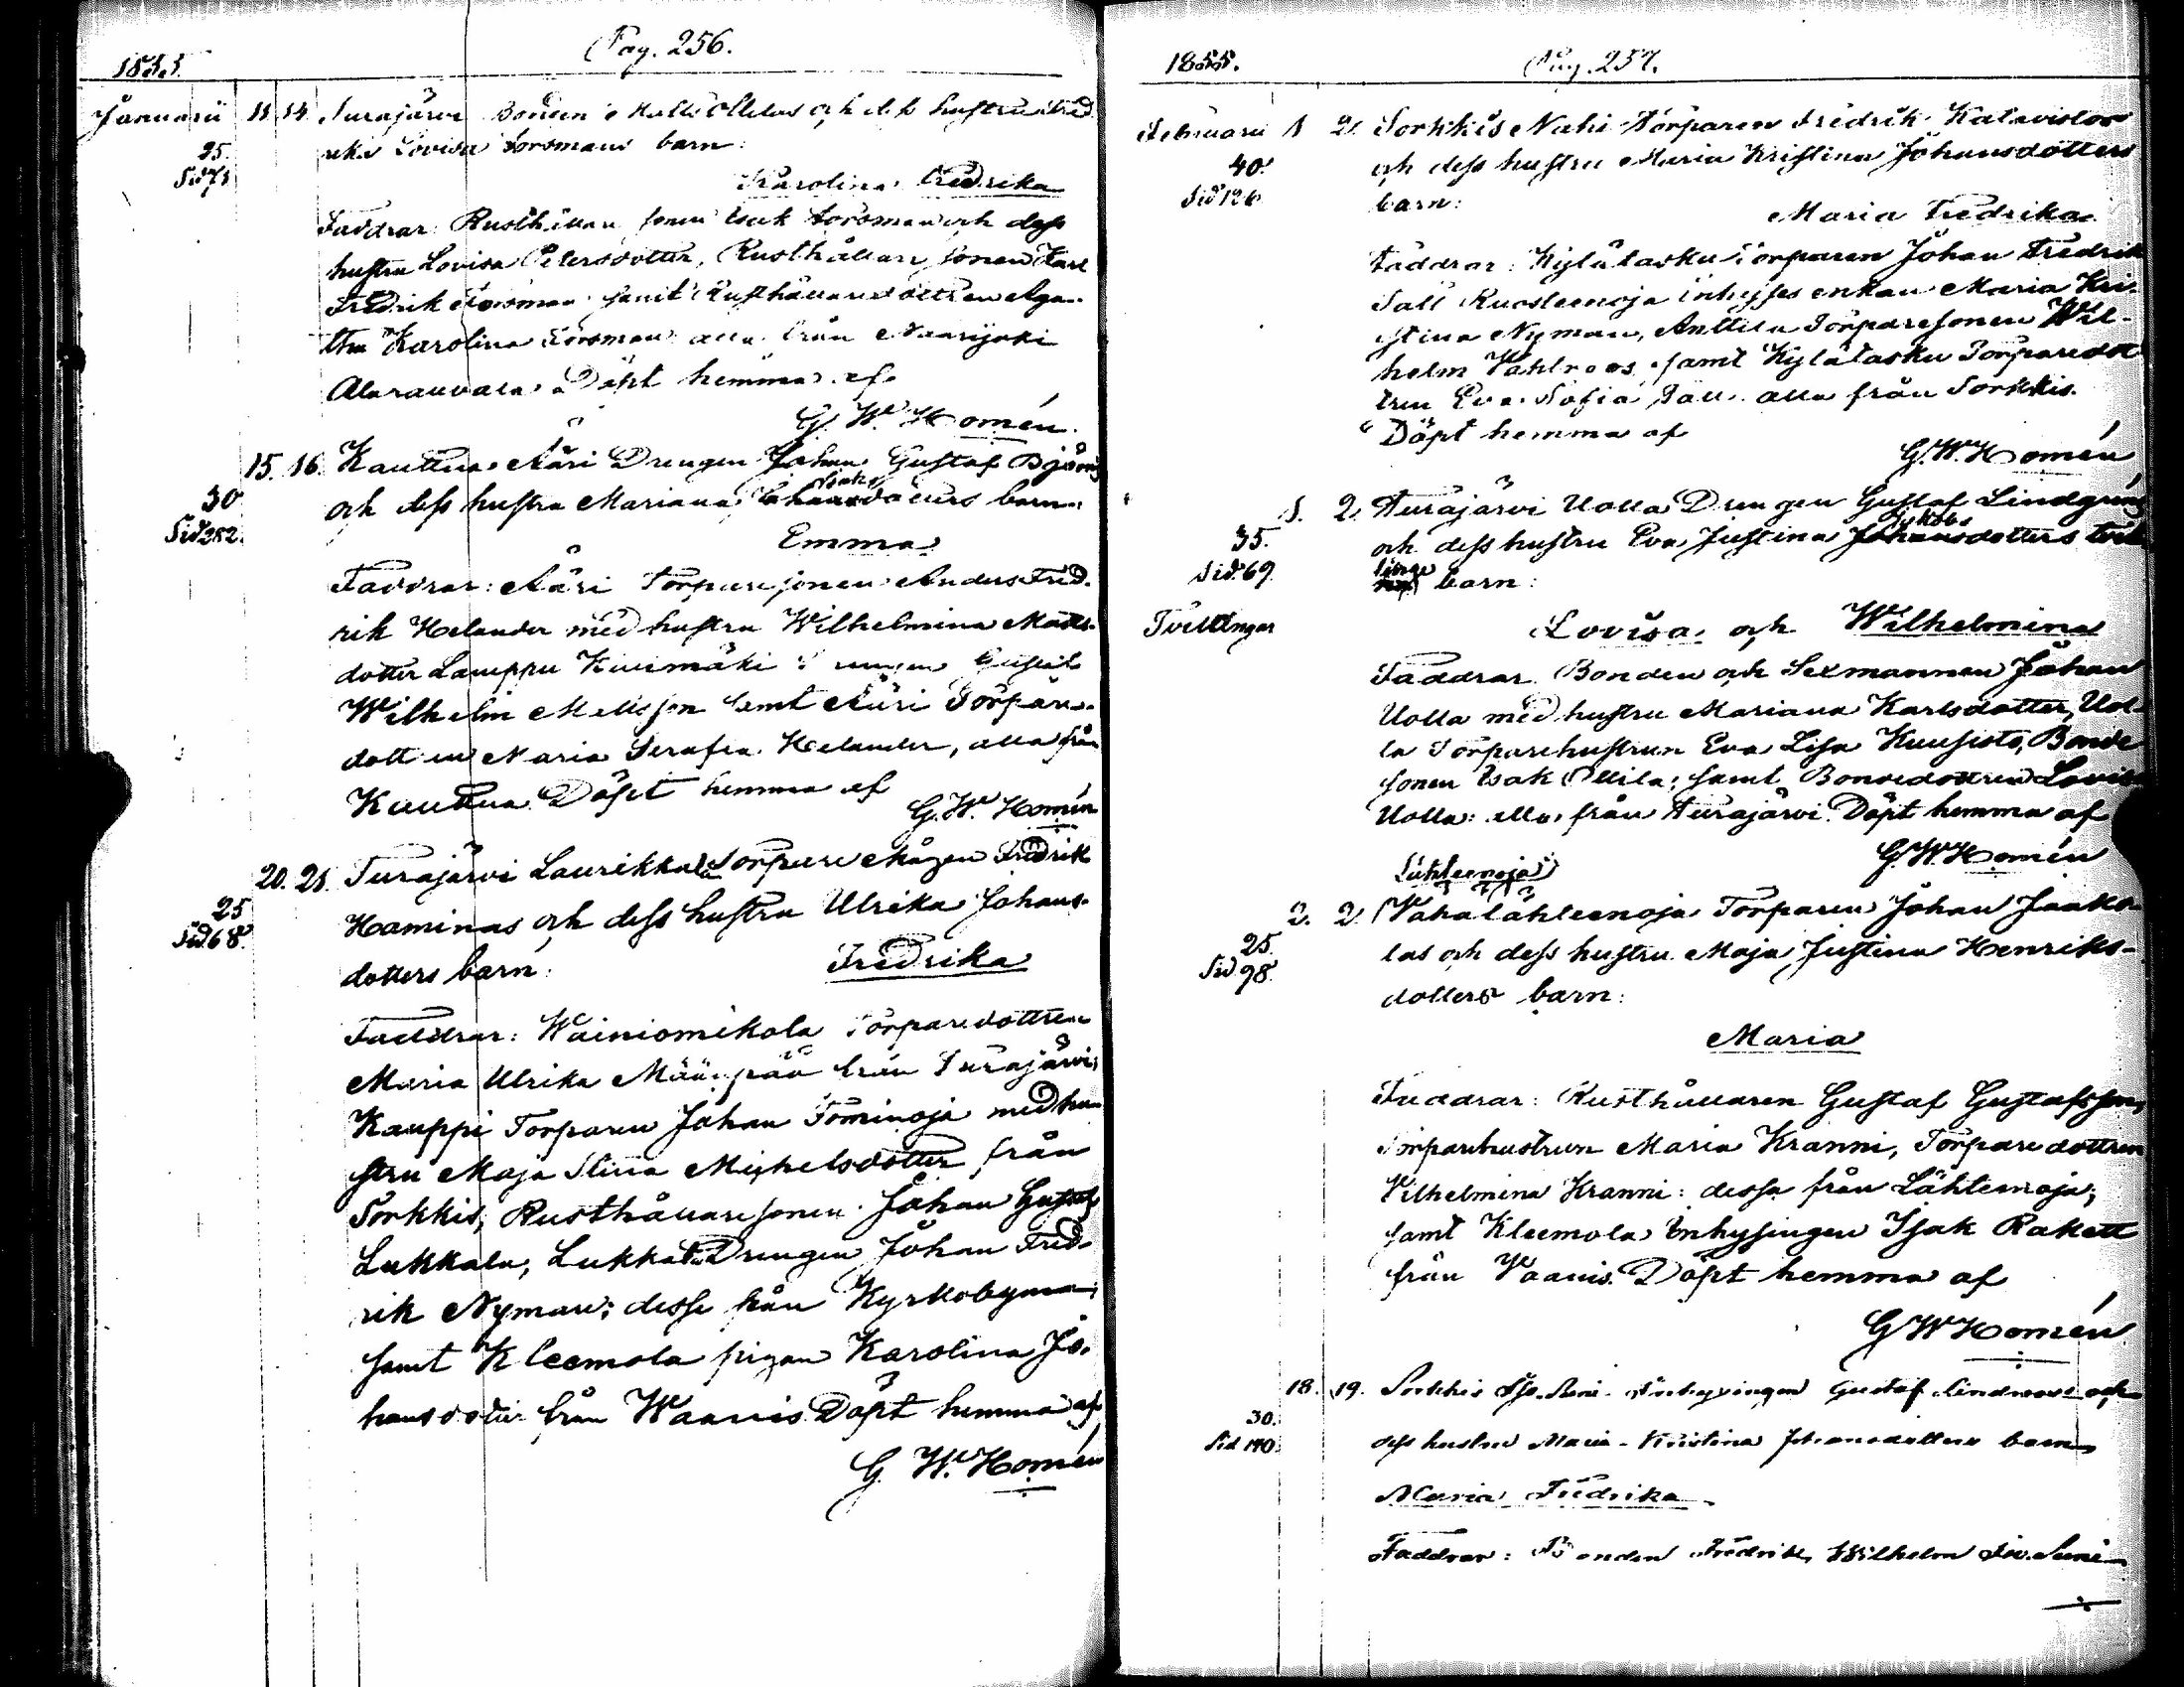 Pag. 256.
1855.
Januarii 11 14 Turajärvi Bonden Matts Ollilas och dess hustru Fred
25. rika Lovisa Forsmans barn:
Sid 71
Karolina Fredrika
Faddrar: Rusthållare sonen Isak Forsman och dess
hustru Lovisa Petersdotter, Rusthållare sonen Karl
Fredrik Forsman samt Rusthållaredottren Aga-
tha Karolina Forsman alla från Naarijoki
Alarauvala. Döpt hemma af
G. W. Homén.
15. 16. Kauttua Ääri Drengen Johan Gustaf Björns
Isaks
30 och dess hustru Mariana dotters barn:
Sid 252.
Emma
Faddrar: Ääri Torparesonen Anders Fred-
rik Helander med hustru Wilhelmina Matts-
dotter Lauppu Kuusimäki Drengen Gustaf
Wilhelm Mattsson samt Ääri Torpare-
dottren Maria Serafia Helander, alla från
Kauttua. Döpt hemma af
G. W. Homén
20. 21. Turajärvi Laurikkala Torpare Mågen Fredrik
25 Haminas och dess hustru Ulrika Johans-
Sid 68.
dotters barn: Fredrika
Faddrar: Wäiniomikola Torparedottren
Maria Ulrika Määpää från Turajärvi;
Kauppi Torparen Johan Tominoja med hu-
stru Maja Stina Michelsdotter från
Sorkkis, Rusthållaresonen Johan Gustaf
Lukkala, Lukkala Drengen Johan Fred-
rik Nyman; desse från Kyrkobyn
samt Kleemola pigan Karolina Jo-
hansdotter från Waanis Döpt hemma af
G. W. Homén
1855. Pag. 257.
Februarii 1 2. Sorkkis Nahi Torparen Fredrik Katavistos
40. och dess hustru Maria Kristina Johansdotters
Sid 126 barn:
Maria Fredrika
Faddrar: Kylätasku Torparen Johan Fredrik
Täll Ruosteenoja inhysses enkan Maria Kri-
stina Nyman, Anttila Torparesonen Wil-
helm Wahlroos samt Kylätasku Torparedot
tren Eva Sofia Täll alla från Sorkkis.
Döpt hemma af
G. W. Homén
1. 2. Turajärvi Uolla Drengen Gustaf Lindgrens
Jakobs
35. och dess hustru Eva Justina Johansdotters tvil
Sid 69. linge
barn:
Tvillingar
Lovisa och Wilhelmina
Faddrar Bonden och Sexmannen Johan
Uolla med hustru Mariana Karlsdotter, Uol-
la Torparehustrun Eva Lisa Kuusisto, Bonde
sonen Isak Ollila, samt Bondedottren Lovisa
Uolla: alla från Turajärvi. Döpt hemma af
G. W. Homén
Lähteenoja
2. 2. (Vähälähteenoja Torparen Johan Jaako-
25. las och dess hustru Maja Justina Henriks-
Sid 98.
dotters barn:
Maria
Faddrar: Rusthållaren Gustaf Gustafsson,
Torparehustrun Maria Kranni, Torparedottren
Vilhelmina Kranni: dessa från Lähteenoja;
samt Kleemola Inhysingen Isak Rakett
från Waanis. Döpt hemma af
G W Homén
18. 19. Sorkkis Iso-Seni Inhysingen Gustaf Lindroos och
30.
Sid 140. dess hustru Maria Kristina Johansdotters barn
Maria Fredrika
Faddrar: Bonden Fredrik Wilhelm Iso-Seni